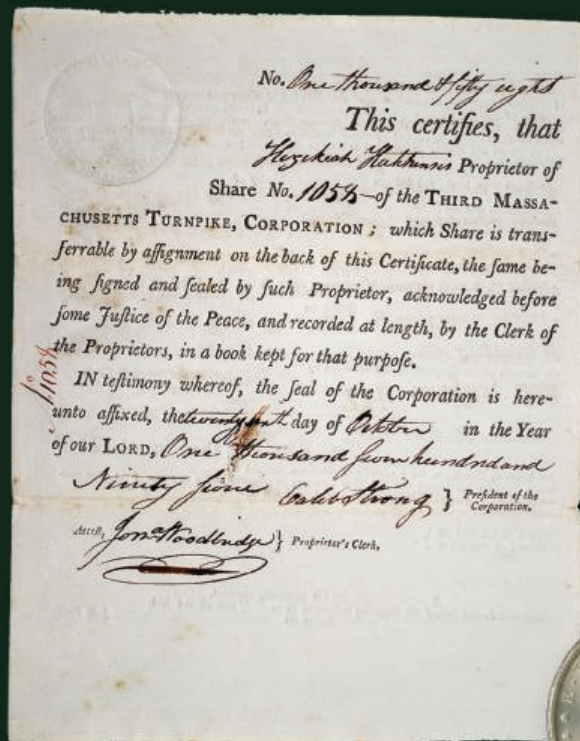 No. One thousand & fifty eight
This certifies, that
Hezekiah Hutchens is Proprietor of
Share No. 1058 of the THIRD MASSA-
CHUSETTS TURNPIKE, CORPORATION; which Share is trans-
ferrable by aſſignment on the back of this Certificate, the ſame be-
ing ſigned and ſealed by ſuch Proprietor, acknowledged before
ſome Juſtice of the Peace, and recorded at length, by the Clerk of
the Proprietors, in a book kept for that purpoſe.
IN teſtimony whereof, the ſeal of the Corporation is here-
unto affixed, the twenty day of October in the Year
of our LORD, One thousand seven hundred and
Ninety seven Caleb Strong } Preſident of the
Corporation.
Atteſt, Jona Woodbridge } Proprietor's Clerk.
No 1058